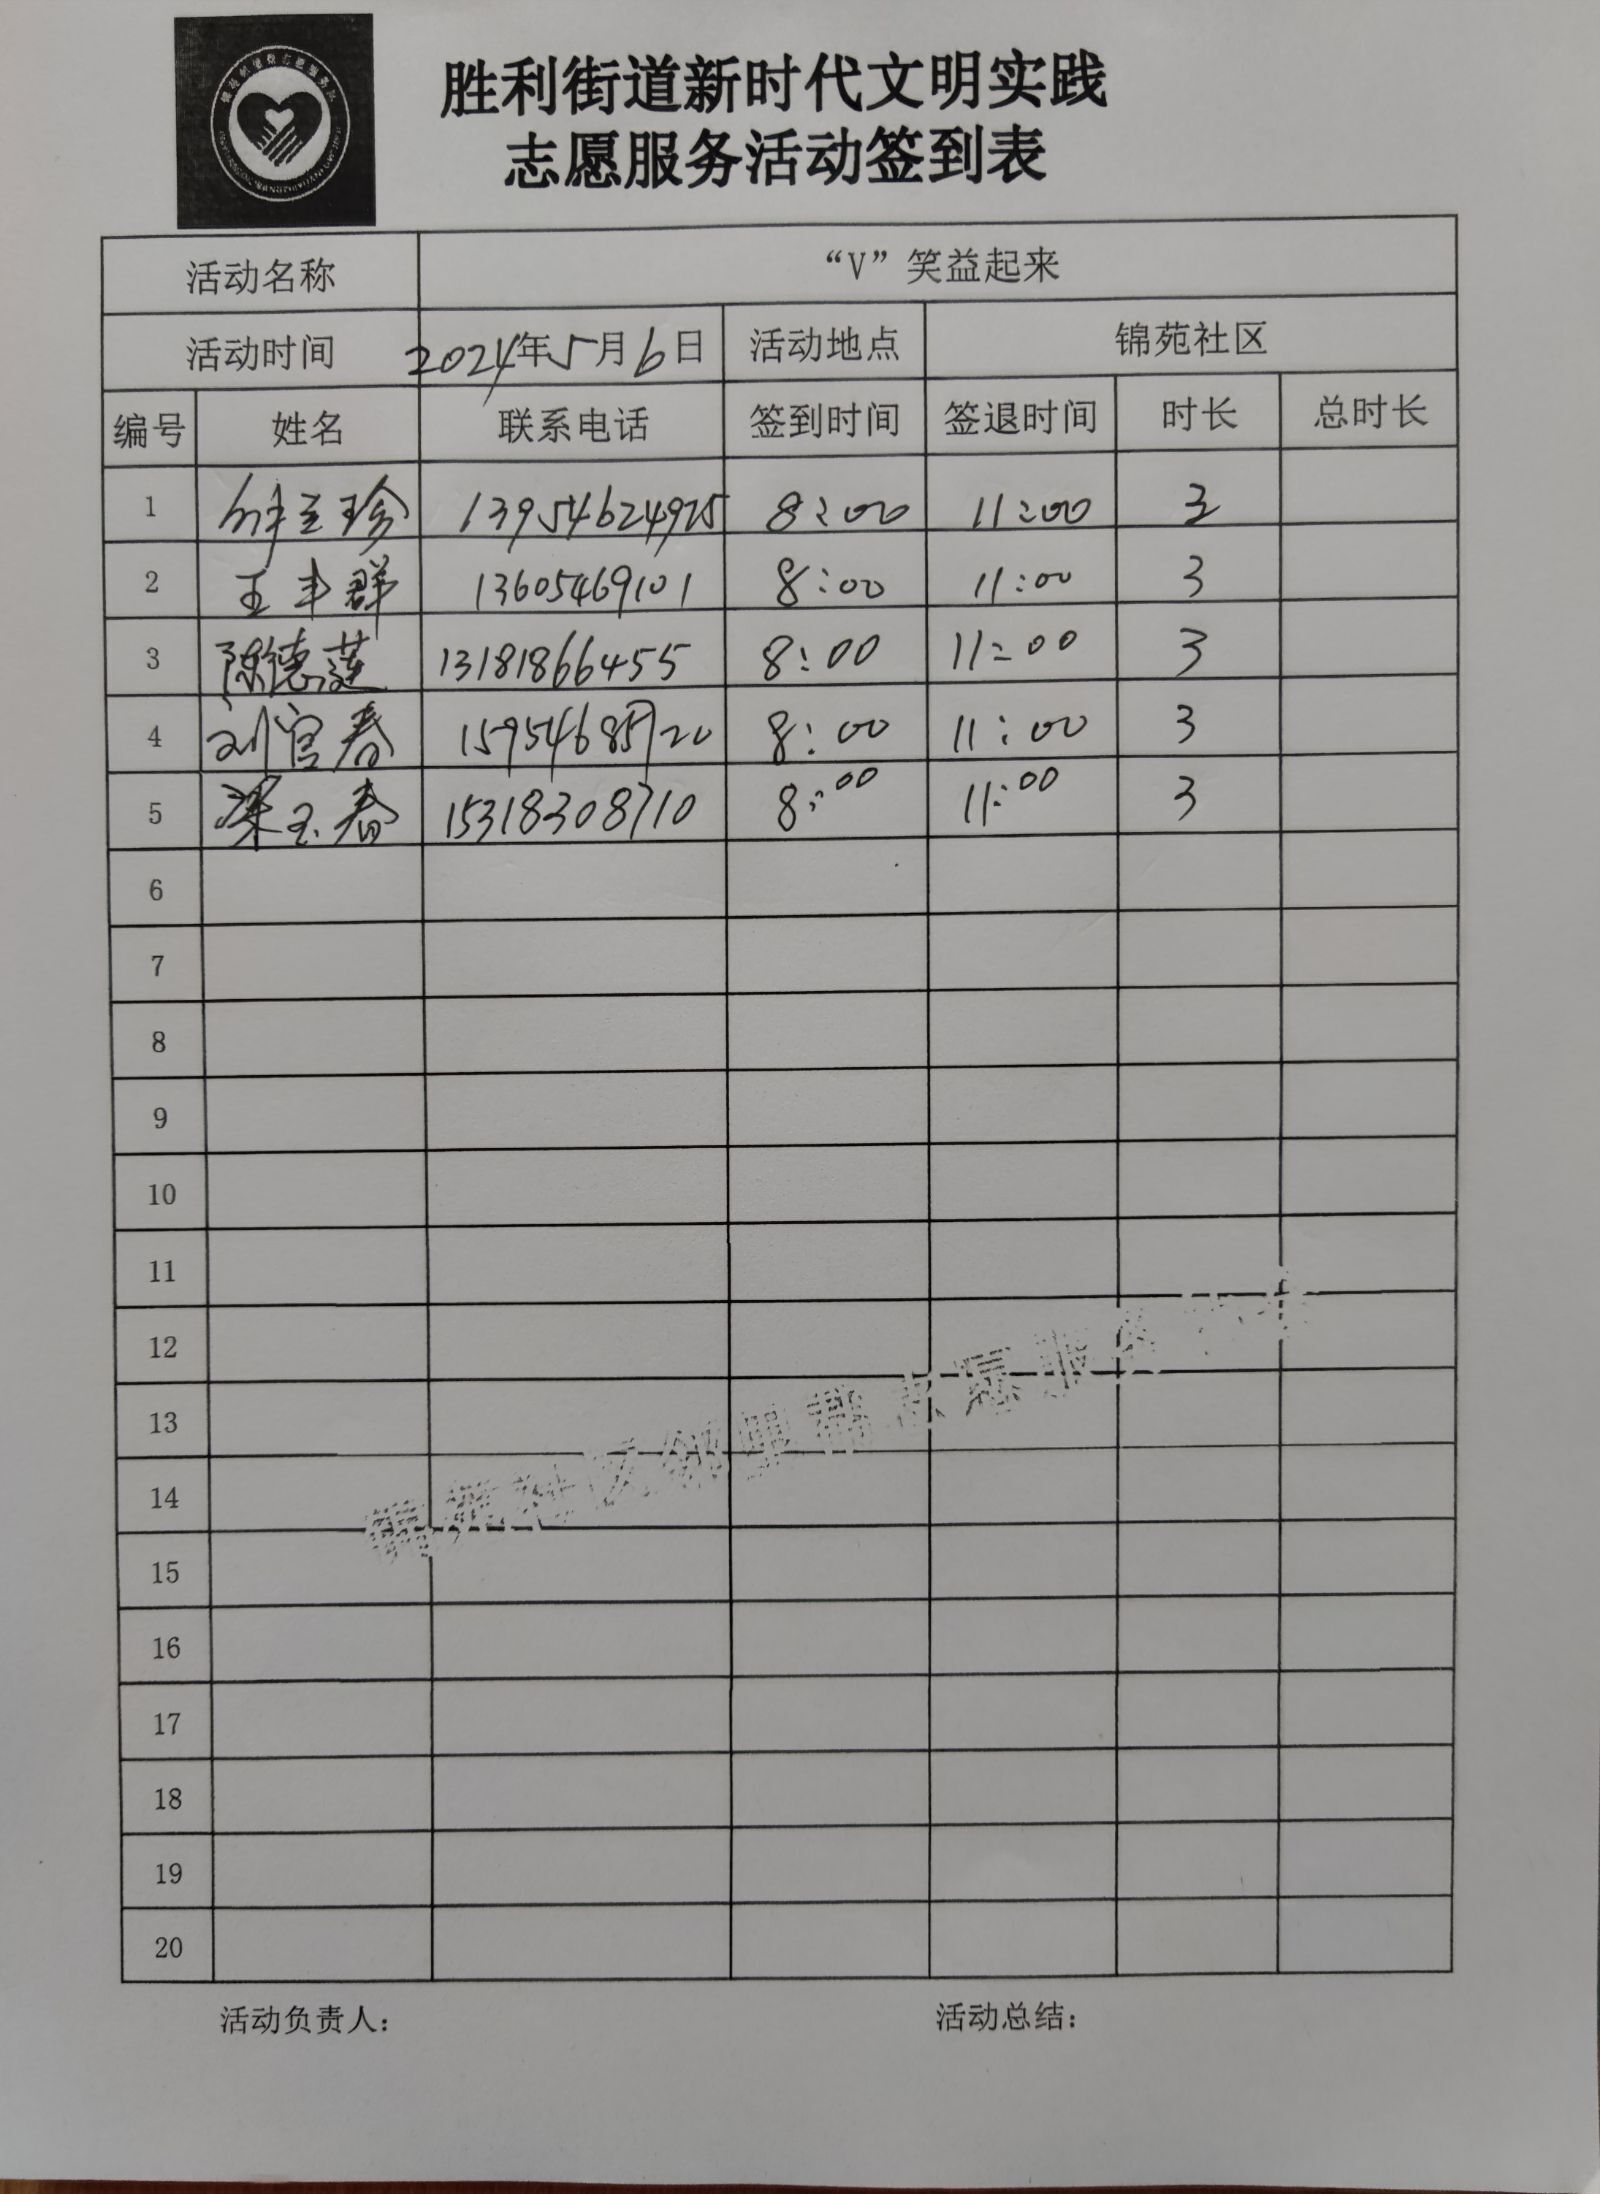 胜利街道新时代文明实践
志愿服务活动签到表
活动名称 “V”笑益起来
活动时间 2024年5月6日 活动地点 锦苑社区
编号 姓名 联系电话 签到时间 签退时间 时长 总时长
1 13954624925 8:00 11:00 3
2 王丰群 13605469101 8:00 11:00 3
3 陈德莲 13181866455 8:00 11:00 3
4 刘官春 8:00 11:00 3
5 梁玉春 15318308710 8:00 11:00 3
6
7
8
9
10
11
12
13
14
15
16
17
18
19
20
锦苑社区邻里帮志愿服务
活动负责人： 活动总结：